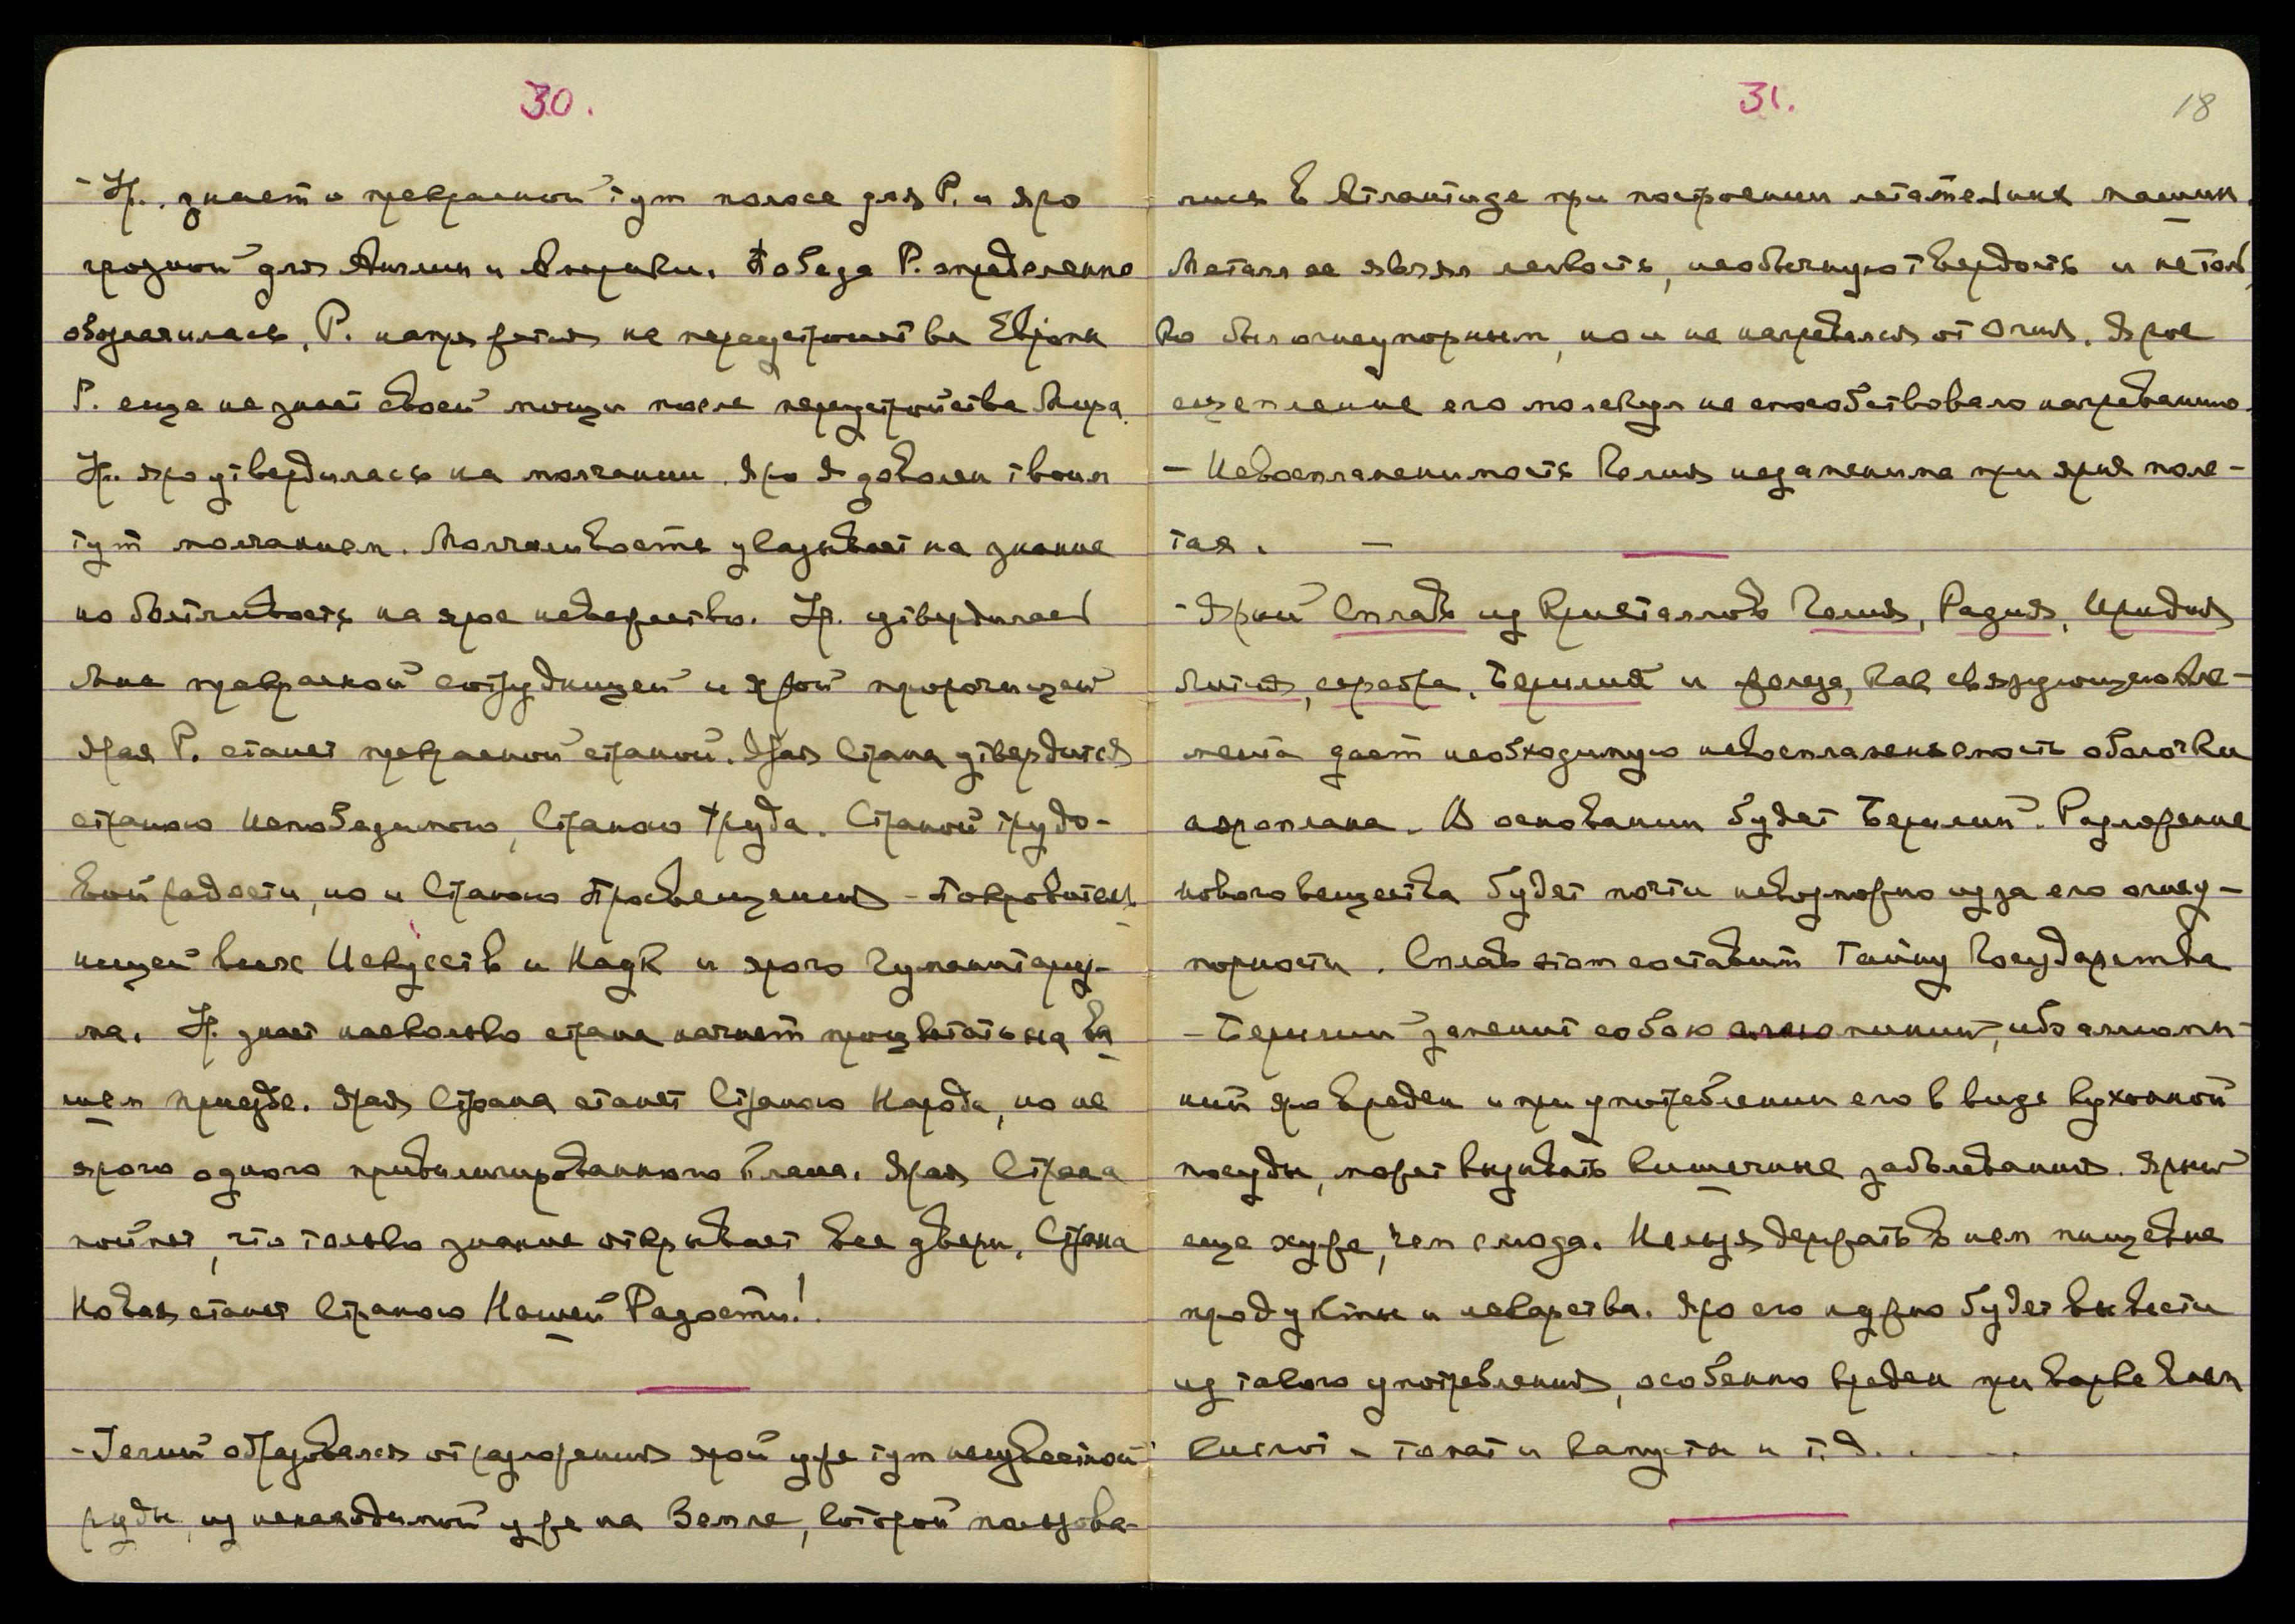 30.
- Ур. знает о прекрасной тут полосе для Р. и яро
грозной для Англии и Америки. Победа Р. определенно
обозначилась, Р. напряжется на переустройства Европы
Р. еще не знает своей мощи после переустройства Мира.
Ур. яро утвердилась на молчании. Яро Я доволен твоим
тут молчанием. Молчаливость указывает на знание
но болтливость на ярое невежество. Ур. утвердилась
Мне прекрасной сотрудницей и ярой пророчицей
Ярая Р. станет прекрасной страной. Ярая Страна утвердится
страною Непобедимою, Страною Труда. Страной трудо-
вой радости, но и Страною Просвещения - Покровитель
ницей всех Искусств и Наук и ярого Гуманитариз-
ма. Ур. знает насколько страна начнет процветать на Ва
шем приезде. Ярая Страна станет Страною Народа, но не
ярого одного привилегированного Класса. Ярая Страна
поймет, что только знание открывает все двери, Страна
Новая станет Страною Нашей Радости!
- Гелий образовался от разложения ярой уже тут неизвестной
руды, из ненаходимой уже на Земле, которой пользова-
31.
18
лись в Атлантиде при построении летательных машин.
Металл ее являл легкость, необычную твердость и не толь
ко был огнеупорным, но и не нагревался от Огня. Ярое
сцепление его молекул не способствовало нагреванию.
- Невоспламенимость Гелия незаменима при ярых поле-
тах. -
- Ярый Сплав из Кристаллов Гелия, Радия, Иридия
Лития, серебра, Берилия и золота, как связующего эле-
мента дает необходимую невоспламеняемость оболочки
аэроплана. В основании будет Берилий. Разложение
нового вещества будет почти невозможно из за его огнеу-
порности. Сплав этот составит Тайну Государства
- Берилий заменит собою алюминий, ибо алюми-
ний яро вреден и при употреблении его в виде кухонной
посуды, может вызывать кишечные заболевания. Ярый
еще хуже, чем слюда. Нельзя держать в нем пищевые
продукты и лекарства. Яро его нужно будет вывести
из такого употребления, особенно вреден при варке в нем
кислот - томат и капусты и т.д. . - -